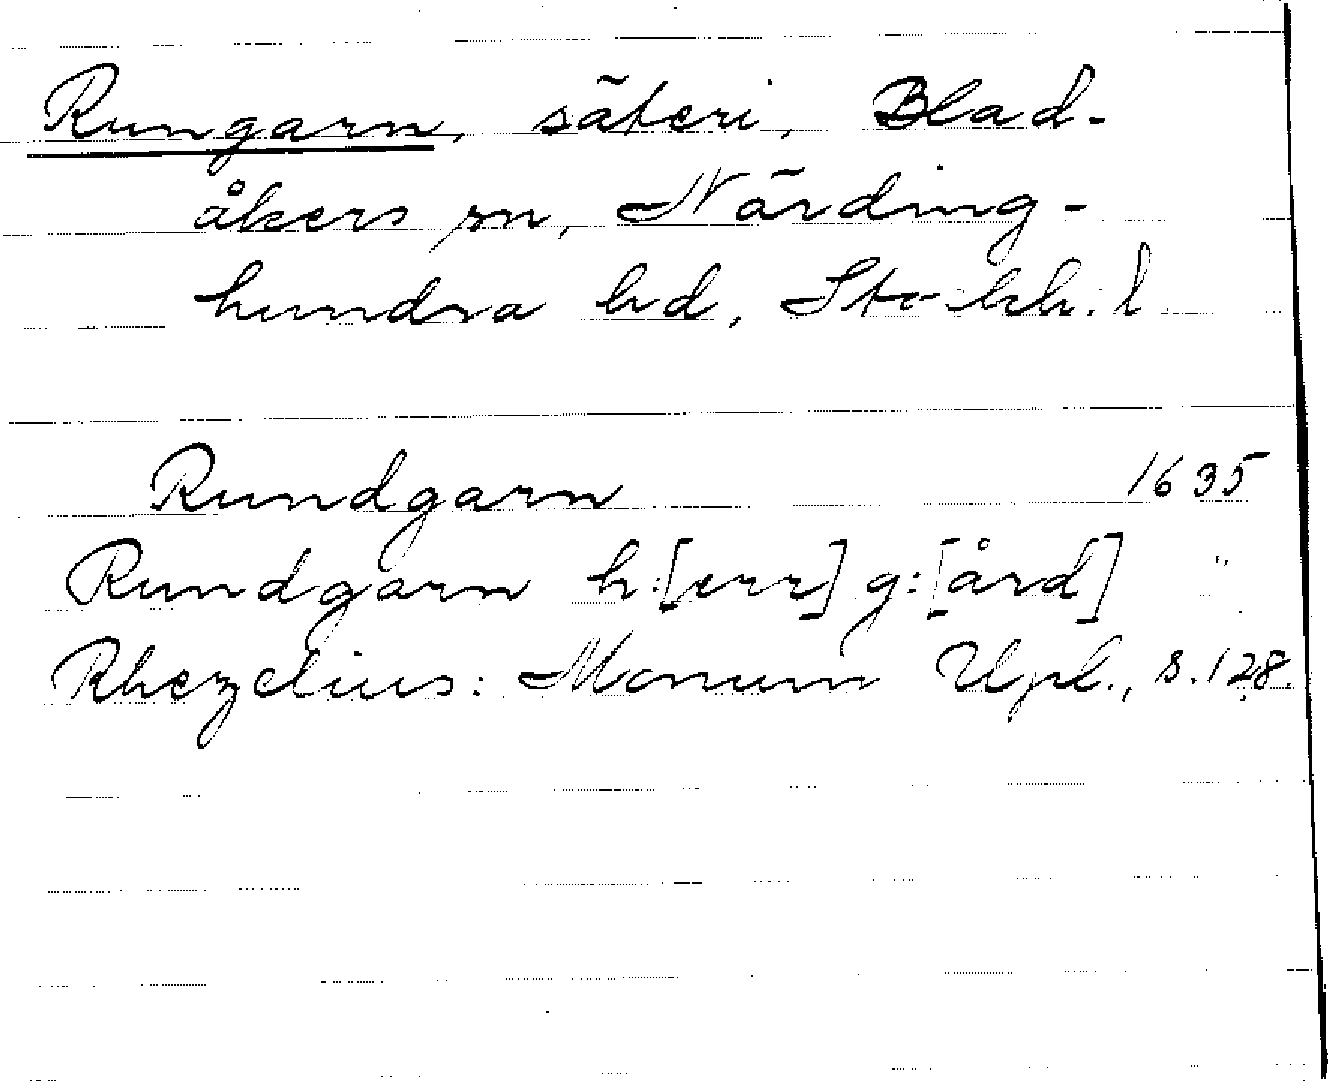 Rungarn, säteri, Blad-
åkers sn, Närding-
hundra hd, Stockh. l
Rundgarn 1635
Rundgarn h:[err] g:[ård] "
Rhezelius: Monum Upl., s. 128.